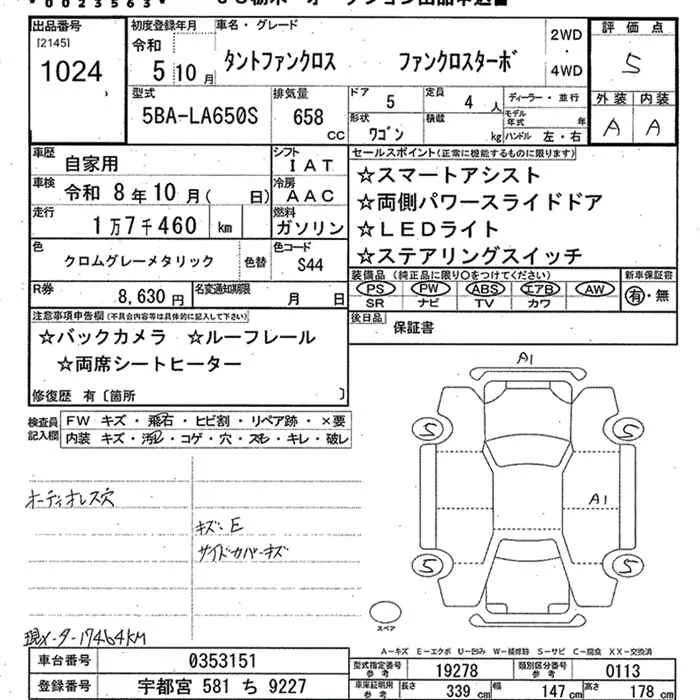 * 0023563 *
出品番号 初度登録年月 車名・グレード 2WD・4WD 評価点
[2145] 令和
1024 5 10月 タントファンクロス ファンクロスターボ 5
型式 排気量 ドア 5 定員 4人 ディーラー・並行 外装 内装
5BA-LA650S 658 cc 形状 ワゴン 積載 kg モデル年式 年 ハンドル 左・右 A A
車歴 自家用 シフト IAT セールスポイント(正常に機能するものに限ります)
☆スマートアシスト
車検 令和 8年10月( 日) 冷房 AAC ☆両側パワースライドドア
走行 1万7千460 km 燃料 ガソリン ☆LEDライト
☆ステアリングスイッチ
色 クロムグレーメタリック 色替 色コード S44
装備品(純正品に限り○をつけてください) 新車保証書
PS PW ABS エアB AW 有・無
SR ナビ TV カワ
R券 8,630円 名変通知期限 月 日
後日品 保証書
注意事項申告欄(不具合内容等は具体的に記入して下さい)
☆バックカメラ ☆ルーフレール
☆両席シートヒーター
修復歴 有〔箇所 〕
検査員記入欄 FW キズ・飛石・ヒビ割・リペア跡・×要
内装 キズ・汚れ・コゲ・穴・スレ・キレ・破レ
A1
5 5
A1
5 5
オーディオレス穴
キズ・E
サイドカバーキズ
スペア
現メーター17464KM
A-キズ E-エクボ U-凹み W-補修跡 S-サビ C-腐食 XX-交換済
車台番号 0353151 型式指定番号 参考 19278 類別区分番号 参考 0113
登録番号 宇都宮 581 ち 9227 車庫証明用 参考 長さ 339 cm 幅 147 cm 高さ 178 cm